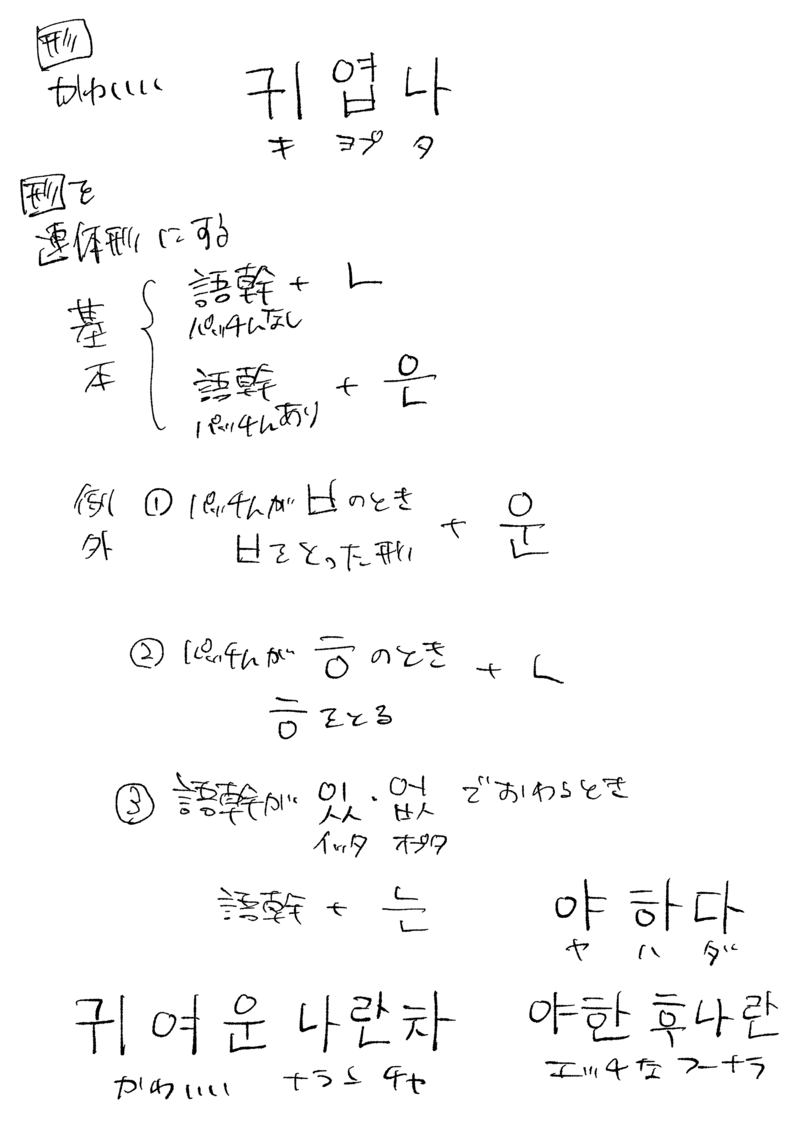 形
かわいい 귀엽나
キ ヨプ タ
形を
連体形にする
基本
語幹 + ㄴ
パッチムなし
語幹 + 은
パッチムあり
例外
① パッチムがㅂのとき
ㅂをとった形 + 운
② パッチムがㅎのとき + ㄴ
ㅎをとる
③ 語幹が 있・없 でおわるとき
イッタ オプタ
語幹 + 는
야하다
ヤ ハ ダ
귀여운 나란차
かわいい ナランチャ
야한 후나란
エッチな フーナラ